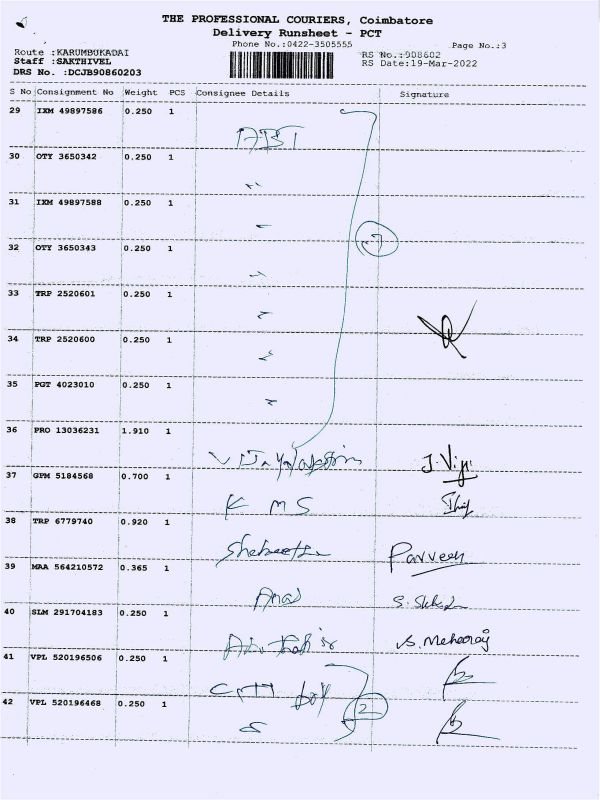 THE PROFESSIONAL COURIERS, Coimbatore
Delivery Runsheet - PCT
Phone No.:0422-3505555
Page No.:3
Route :KARUMBUKADAI
RS No.:908602
Staff :SAKTHIVEL
RS Date:19-Mar-2022
DRS No. :DCJB90860203
S No Consignment No Weight PCS Consignee Details Signature
29 IXM 49897586 0.250 1
30 OTY 3650342 0.250 1
31 IXM 49897588 0.250 1
32 OTY 3650343 0.250 1
33 TRP 2520601 0.250 1
34 TRP 2520600 0.250 1
35 PGT 4023010 0.250 1
36 PRO 13036231 1.910 1
J. Viji
37 GPM 5184568 0.700 1
K M S
38 TRP 6779740 0.920 1
Parveen
39 MAA 564210572 0.365 1
40 SLM 291704183 0.250 1
S. Meharaj
41 VPL 520196506 0.250 1
2
42 VPL 520196468 0.250 1